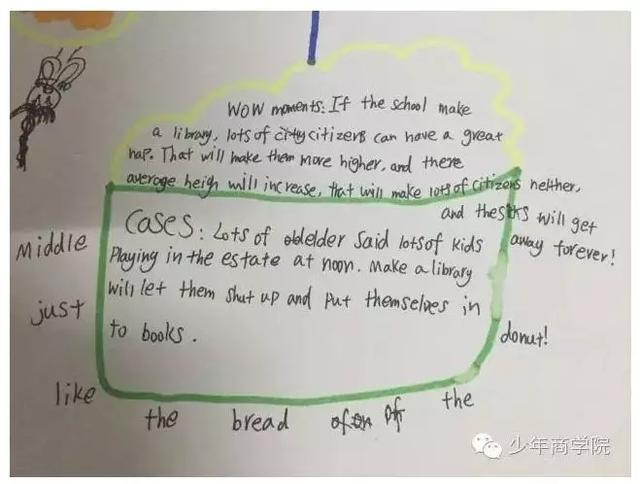 WOW moments: If the school make
a library, lots of city citizens can have a great
nap. That will make them more higher, and there
average heigh will increase, that will make lots of citizens neither,
and the will get
away forever!
Cases: Lots of elder said lots of kids
Playing in the estate at noon. Make a library
will let them shut up and put themselves in
to books.
Middle
just
like
the bread of the
donut!
少年商学院